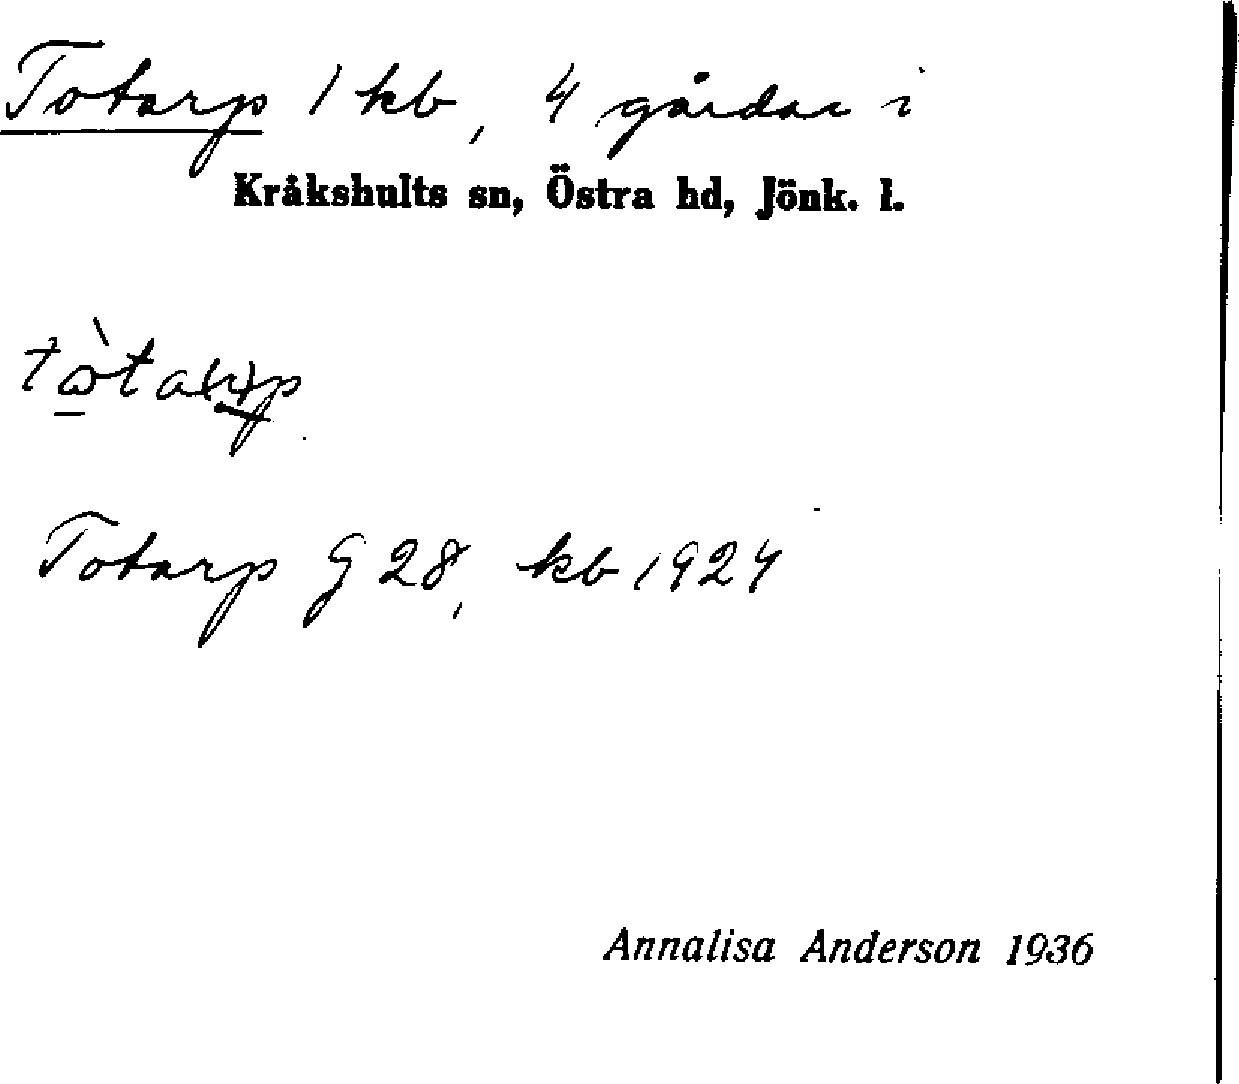 Totarp 1 kb, 4 gårdar i
Kråkshults sn, Östra hd, Jönk. l.
Totarp G 28, kb 1924
Annalisa Anderson 1936